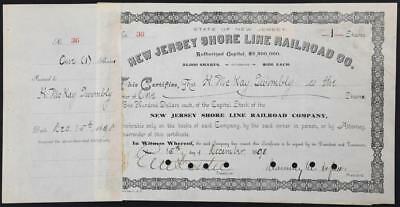 No. 36
One (1) Shares
Issued to
H. McKay Twombly
Dated Dec. 15th
No. 36
STATE OF NEW JERSEY
1 Shares
NEW JERSEY SHORE LINE RAILROAD CO.
Authorized Capital,
SHARES $100 EACH.
This Certifies, That H. McKay Twombly is the
Owner of One Shares
One Hundred Dollars each, of the Capital Stock of the
NEW JERSEY SHORE LINE RAILROAD COMPANY,
transferable only on the books of said Company, by the said owner in person, or by Attorney
surrender of this certificate.
In Witness Whereof, the said Company has caused this Certificate to be signed by its President and Treasurer,
this 15th day of December